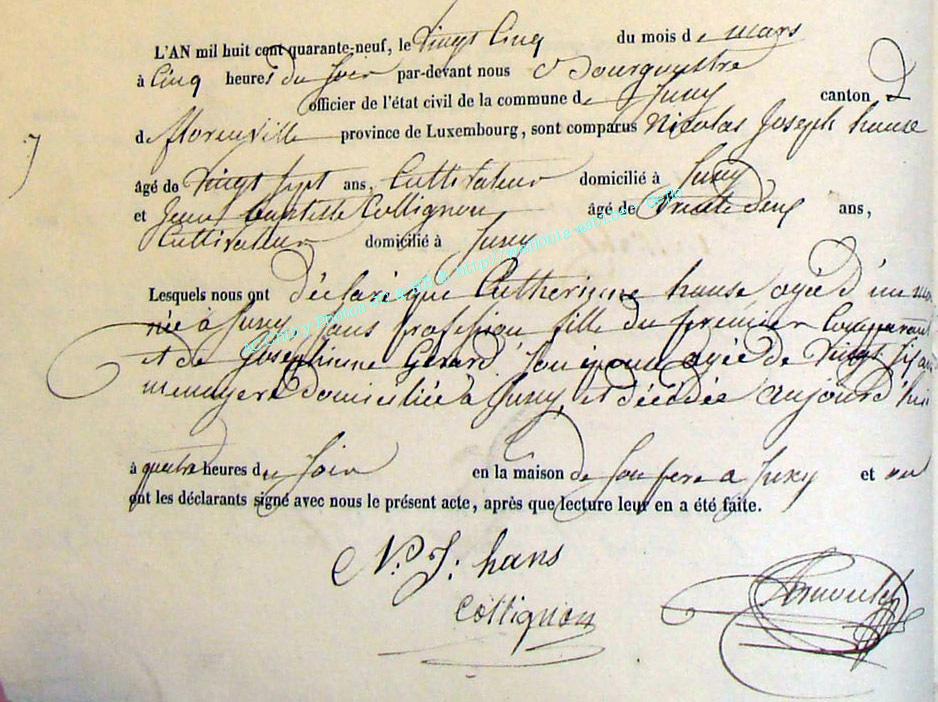 L'AN mil huit cent quarante-neuf, le vingt cinq du mois de mars
à cinq heures du soir par-devant nous
officier de l'état civil de la commune de Juxy canton
de florenville province de Luxembourg, sont comparus Nicolas Joseph hanse
âgé de vingt sept ans, Cultivateur domicilié à Juxy
et Jean Baptiste Collignon âgé de trente deux ans,
Cultivateur domicilié à Juxy
Lesquels nous ont déclaré que Catherinne hanse agée d'un
née à Juxy sans profession fille du premier Comparant
et de Josephinne Gérard, son épouse agée de vingt
menagere domiciliée à Juxy, est décédée aujourd'hui
à quatre heures du soir en la maison de son pere a Juxy et
ont les déclarants signé avec nous le présent acte, après que lecture leur en a été faite.
N. J: hans
Collignon